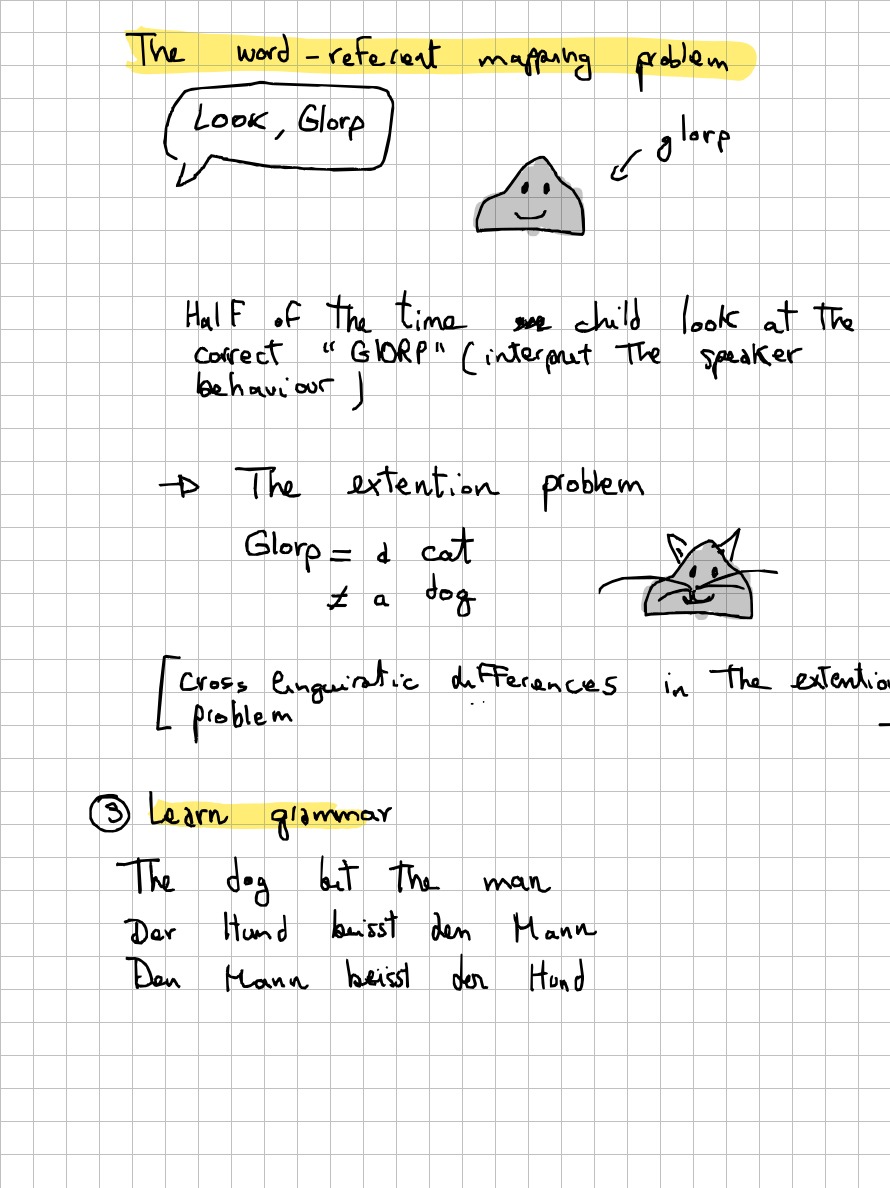 The word-referent mapping problem
Look, Glorp
glorp
Half of the time child look at the
correct "GlORP" (interpret the speaker
behaviour)
→ The extention problem
Glorp = a cat
≠ a dog
[cross linguistic differences in the extentio
problem
③ Learn grammar
The dog bit the man
Der Hund beisst den Mann
Den Mann beisst der Hund